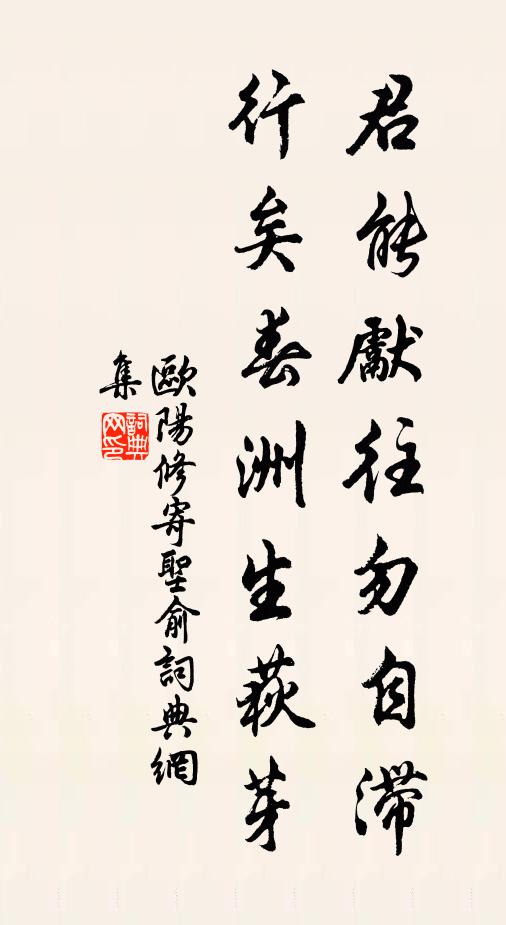 君能獻往勿自滯
行矣春洲生荻芽
歐陽修寄聖俞詞典網
集
詞典
网印